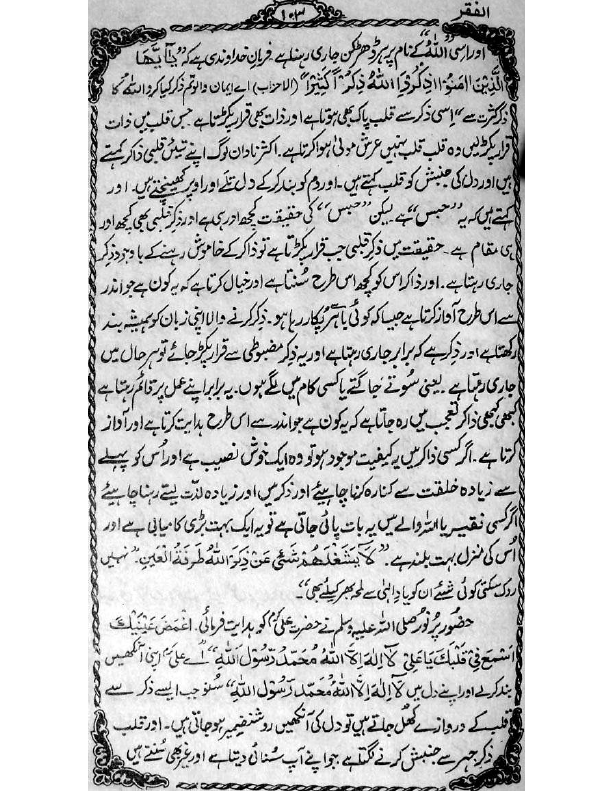 الفقر
۱۰۳
اور اسی "اللہُ" کے نام پر ہر دھڑکن جاری رہتا ہے۔ فرمان خداوندی ہے کہ "یٰٓاَیُّھَا
الَّذِیْنَ اٰمَنُوا اذْکُرُوا اللہَ ذِکْرًا کَثِیْرًا" (الاحزاب) اے ایمان والو تم ذکر کیا کرو اللہ کا
ذکر کثرت سے" اِسی ذکر سے قلب پاک بھی ہوتا ہے اور ذات بھی قرار پکڑتا ہے۔ جس قلب میں ذات
قرار پکڑیں وہ قلب قلب نہیں عرش مولیٰ ہوا کرتا ہے۔ اکثر نادان لوگ اپنے تیئں قلبی ذاکر کہتے
ہیں اور دل کی جنبش کو قلب کہتے ہیں۔ اور دم کو بند کر کے دل تلے اور اوپر کھینچتے ہیں۔ اور
کہتے ہیں کہ یہ "حبس" ہے لیکن "حبس" کی حقیقت کچھ اور ہی ہے اور ذکر قلبی بھی کچھ اور
ہی مقام ہے۔ حقیقت میں ذکرِ قلبی جب قرار پکڑتا ہے تو ذاکر کے خاموش رہنے کے باوجود ذکر
جاری رہتا ہے۔ اور ذاکر اس کو کچھ اس طرح سُنتا ہے اور خیال کرتا ہے کہ یہ کون ہے جو اندر
سے اس طرح آواز کرتا ہے جیسا کہ کوئی باہر پکار رہا ہو۔ ذکر کرنے والا اپنی زبان کو ہمیشہ بند
رکھتا ہے اور ذکر ہے کہ برابر جاری رہتا ہے اور یہ ذکر مضبوطی سے قرار پکڑ جائے تو ہر حال میں
جاری رہتا ہے۔ یعنی سُوتے جاگتے یا کسی کام میں لگے ہوں۔ یہ برابر اپنے عمل پر قائم رہتا ہے
کبھی کبھی ذاکر تعجب میں رہ جاتا ہے کہ یہ کون ہے جو اندر سے اس طرح ہدایت کرتا ہے اور آواز
کرتا ہے۔ اگر کسی ذاکر میں یہ کیفیت موجود ہو تو وہ ایک خوش نصیب ہے اور اُس کو پہلے
سے زیادہ خلقت سے کنارہ کرنا چاہیئے اور ذکر میں اور زیادہ لذت لیتے رہنا چاہیئے
اگر کسی فقیر یا اللہ والے میں یہ بات پائی جاتی ہے تو یہ ایک بہت بڑی کامیابی ہے اور
اُس کی منزل بہت بلند ہے۔ "لَا یَشْغَلُھُمْ شَئیٌ عَنْ ذِکْرِ اللہِ طَرْفَۃَ الْعَیْنِ" نہیں
روک سکتی کوئی شئے ان کو یادِ الٰہی سے لمحہ بھر کیلئے بھی"۔
حضور پُر نور صلی اللہ علیہ وسلم نے حضرت علیؓ کو ہدایت فرمائی۔ اِغْمِضْ عَیْنَیْکَ
اِسْمَعْ فِیْ قَلْبِکَ یَا عَلِیُّ لَآ اِلٰہَ اِلَّا اللہُ مُحَمَّدٌ رَّسُوْلُ اللہِ" اے علیؓ اپنی آنکھیں
بند کرلے اور اپنے دل میں لَآ اِلٰہَ اِلَّا اللہُ مُحَمَّدٌ رَّسُوْلُ اللہِ" سُنو جب ایسے ذکر سے
قلب کے دروازے کھل جاتے ہیں تو دل کی آنکھیں روشنضمیر ہو جاتی ہیں۔ اور قلب
ذکرِ جہر سے جنبش کرنے لگتا ہے جو اپنے آپ سُنائی دیتا ہے اور غیر بھی سُنتے ہیں